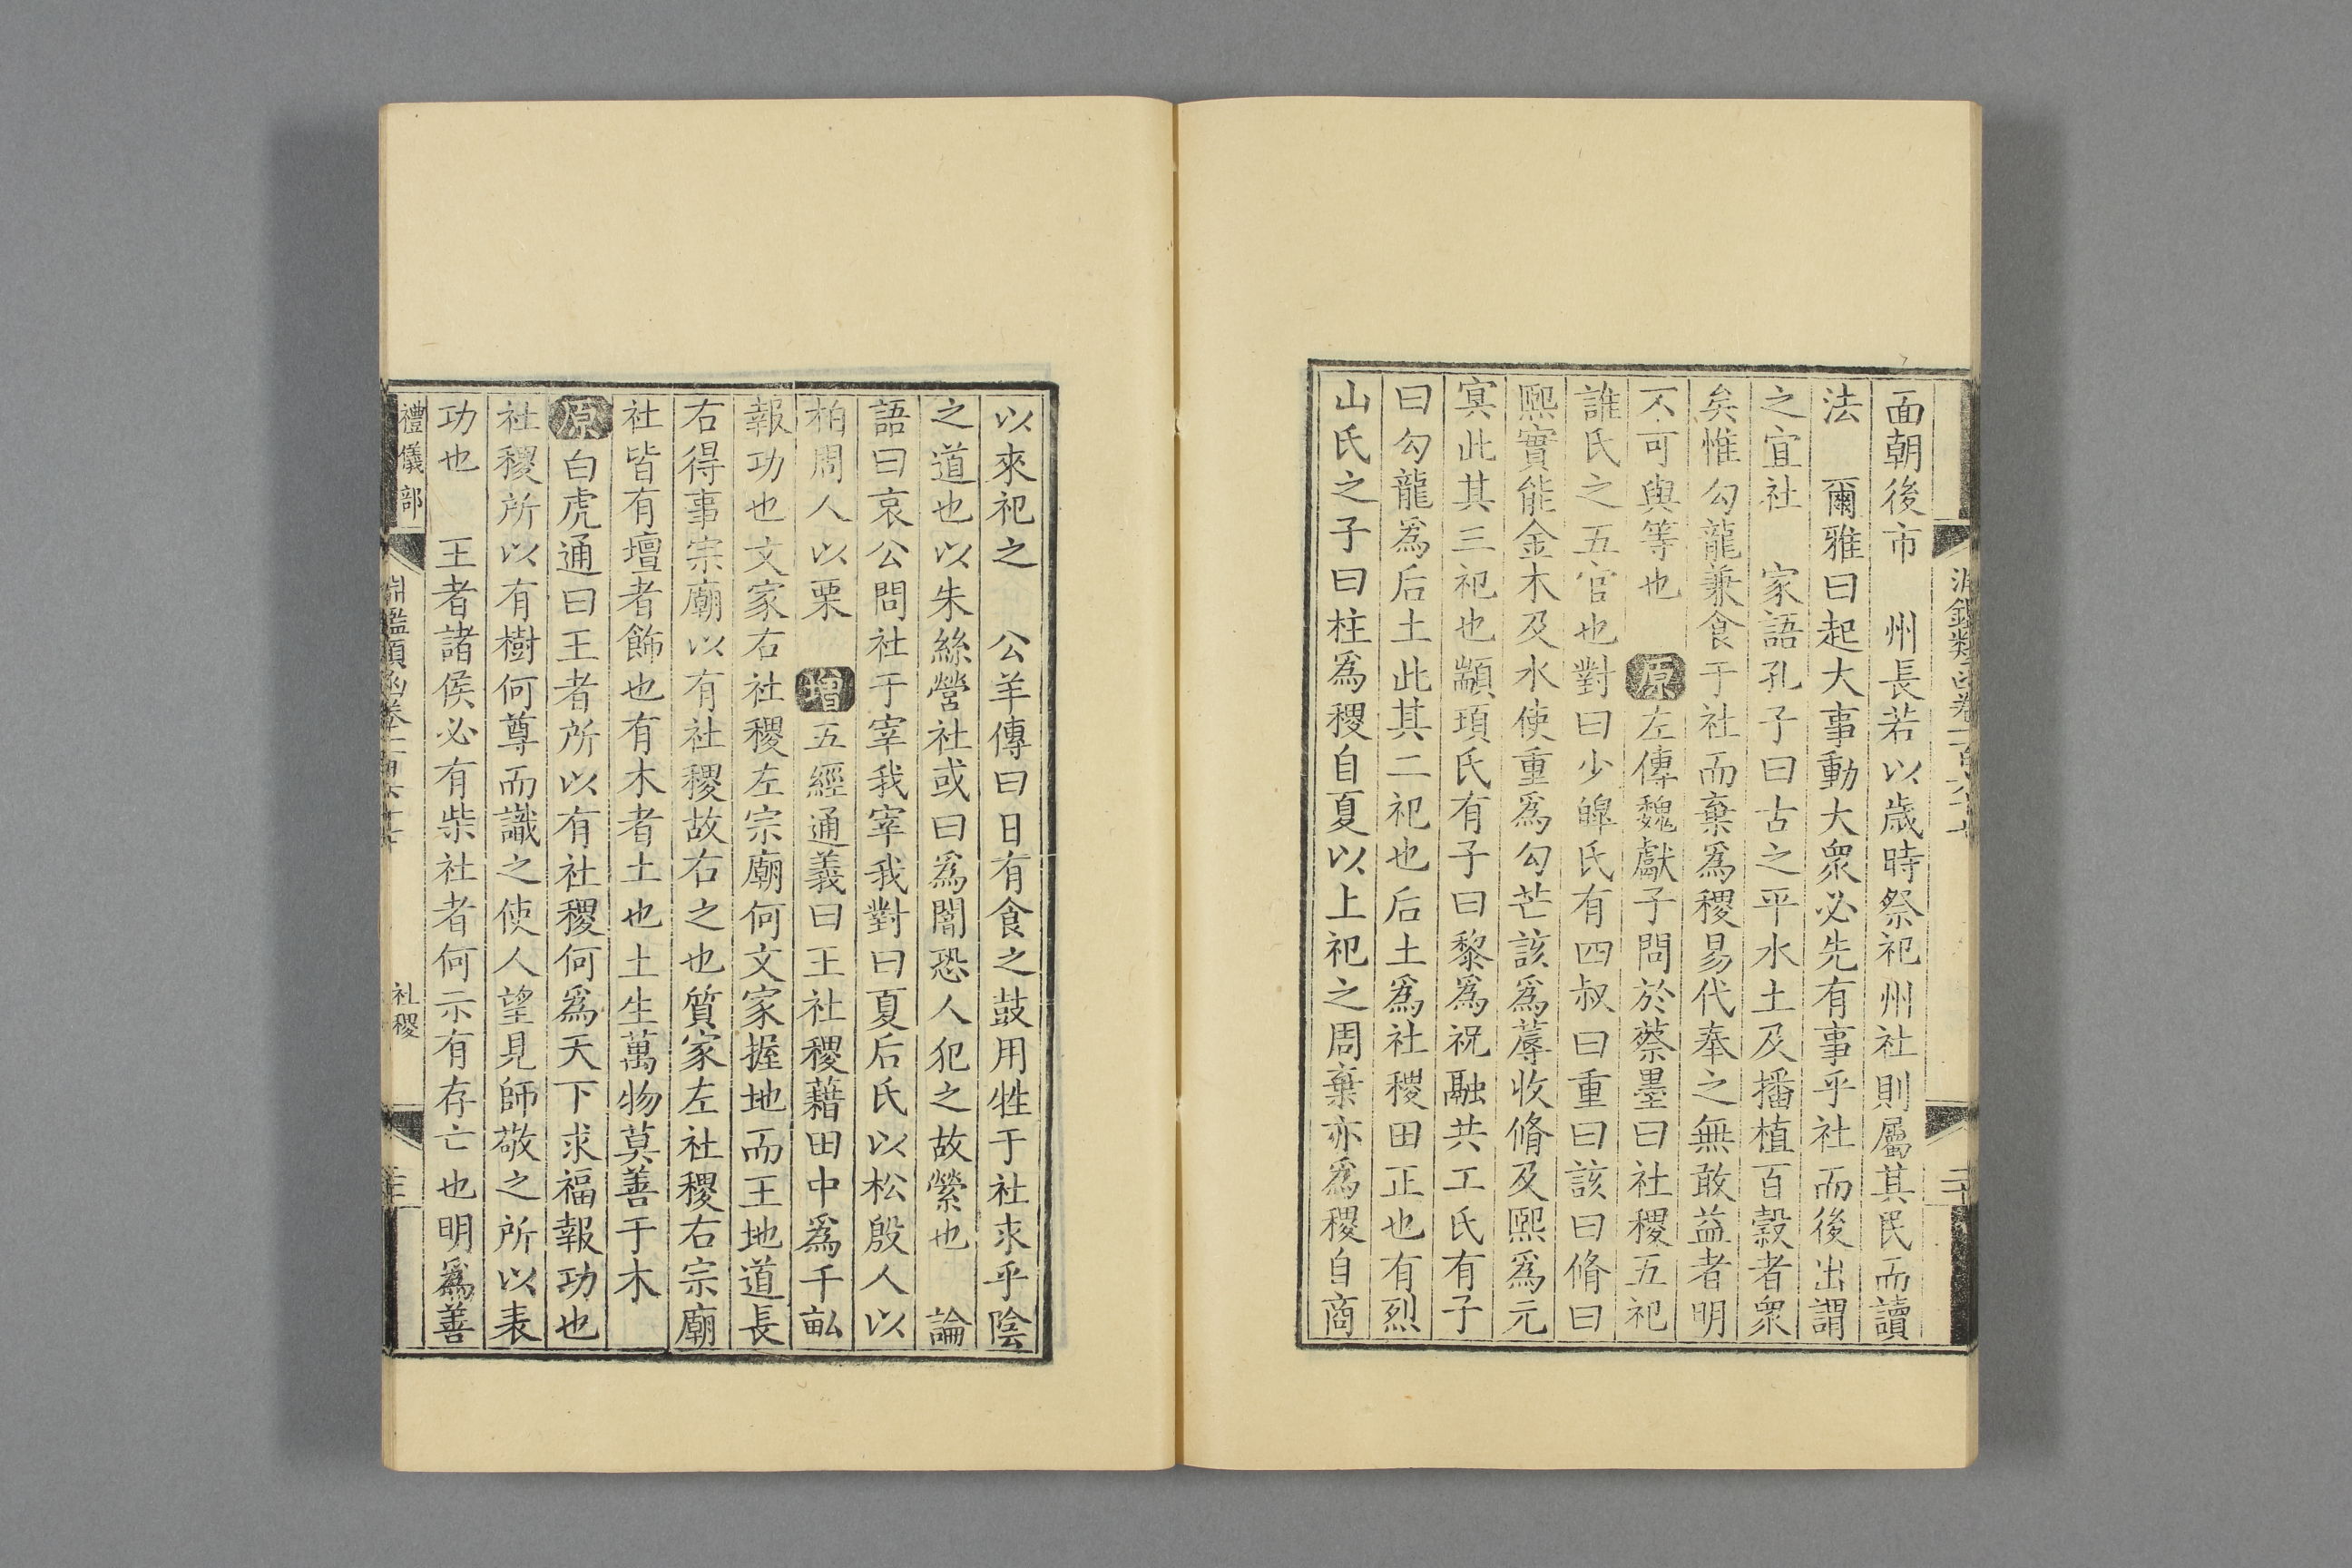 面朝後市　州長若以歲時祭祀州社則屬其民而讀
法　爾雅曰起大事動大衆必先有事乎社而後出謂
之宜社　家語孔子曰古之平水土及播植百穀者衆
矣惟勾龍兼食于社而棄爲稷易代奉之無敢益者明
不可與等也　原左傳魏獻子問於蔡墨曰社稷五祀
誰氏之五官也對曰少皥氏有四叔曰重曰該曰脩曰
熈實能金木及水使重爲勾芒該爲蓐收脩及熈爲元
㝠此其三祀也顓頊氏有子曰黎爲祝融共工氏有子
曰勾龍爲后土此其二祀也后土爲社稷田正也有烈
山氏之子曰柱爲稷自夏以上祀之周棄亦爲稷自商
以來祀之　公羊傳曰日有食之鼓用牲于社求乎陰
之道也以朱絲營社或曰爲闇恐人犯之故縈也　論
語曰哀公問社于宰我宰我對曰夏后氏以松殷人以
柏周人以栗　增五經通義曰王社稷藉田中爲千畝
報功也文家右社稷左宗廟何文家握地而王地道長
右得事宗廟以有社稷故右之也質家左社稷右宗廟
社皆有壇者飾也有木者土也土生萬物莫善于木
原白虎通曰王者所以有社稷何爲天下求福報功也
社稷所以有樹何尊而識之使人望見師敬之所以表
功也　王者諸侯必有柴社者何示有存亡也明爲善
禮儀部
淵鑑類函卷一百六十七
社稷